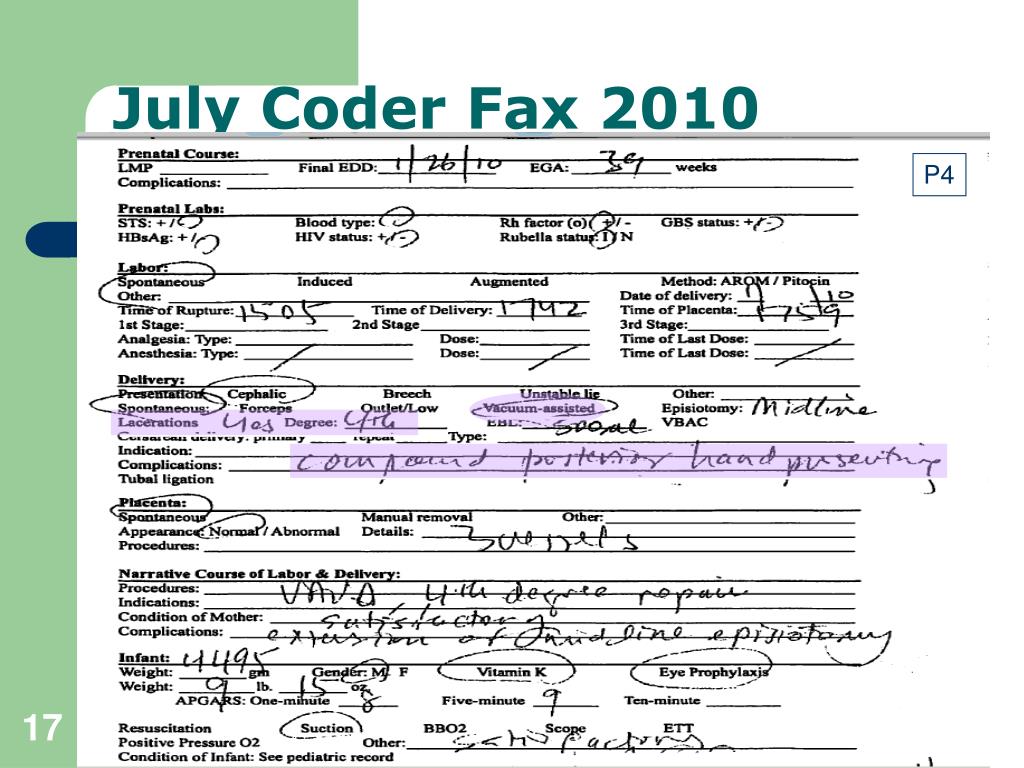 July Coder Fax 2010
P4
Prenatal Course:
LMP Final EDD: 1/26/10 EGA: 39 weeks
Complications:
Prenatal Labs:
STS: +/- Blood type: Rh factor (o) +/- GBS status: +/-
HBsAg: +/ HIV status: +/- Rubella status: I / N
Labor:
Spontaneous Induced Augmented Method: AROM / Pitocin
Other: Date of delivery: /10
Time of Rupture: 1505 Time of Delivery: 1742 Time of Placenta: 1759
1st Stage: 2nd Stage 3rd Stage:
Analgesia: Type: Dose: Time of Last Dose:
Anesthesia: Type: Dose: Time of Last Dose:
Delivery:
Presentation Cephalic Breech Unstable lie Other:
Spontaneous: Forceps Outlet/Low Vacuum-assisted Episiotomy: Midline
Lacerations Yes Degree: 4th EBL: VBAC
Cesarean delivery: primary repeat Type:
Indication:
Complications: compound posterior hand presenting
Tubal ligation
Placenta:
Spontaneous Manual removal Other:
Appearance: Normal / Abnormal Details: 3 vessels
Procedures:
Narrative Course of Labor & Delivery:
Procedures: VAVD, 4th degree repair
Indications:
Condition of Mother: satisfactory
Complications: extension of midline episiotomy
Infant:
Weight: 4495 gm Gender: M F Vitamin K Eye Prophylaxis
Weight: 9 lb. 15 oz.
APGARS: One-minute 8 Five-minute 9 Ten-minute
Resuscitation Suction BBO2 Scope ETT
Positive Pressure O2 Other: satisfactory
Condition of Infant: See pediatric record
17